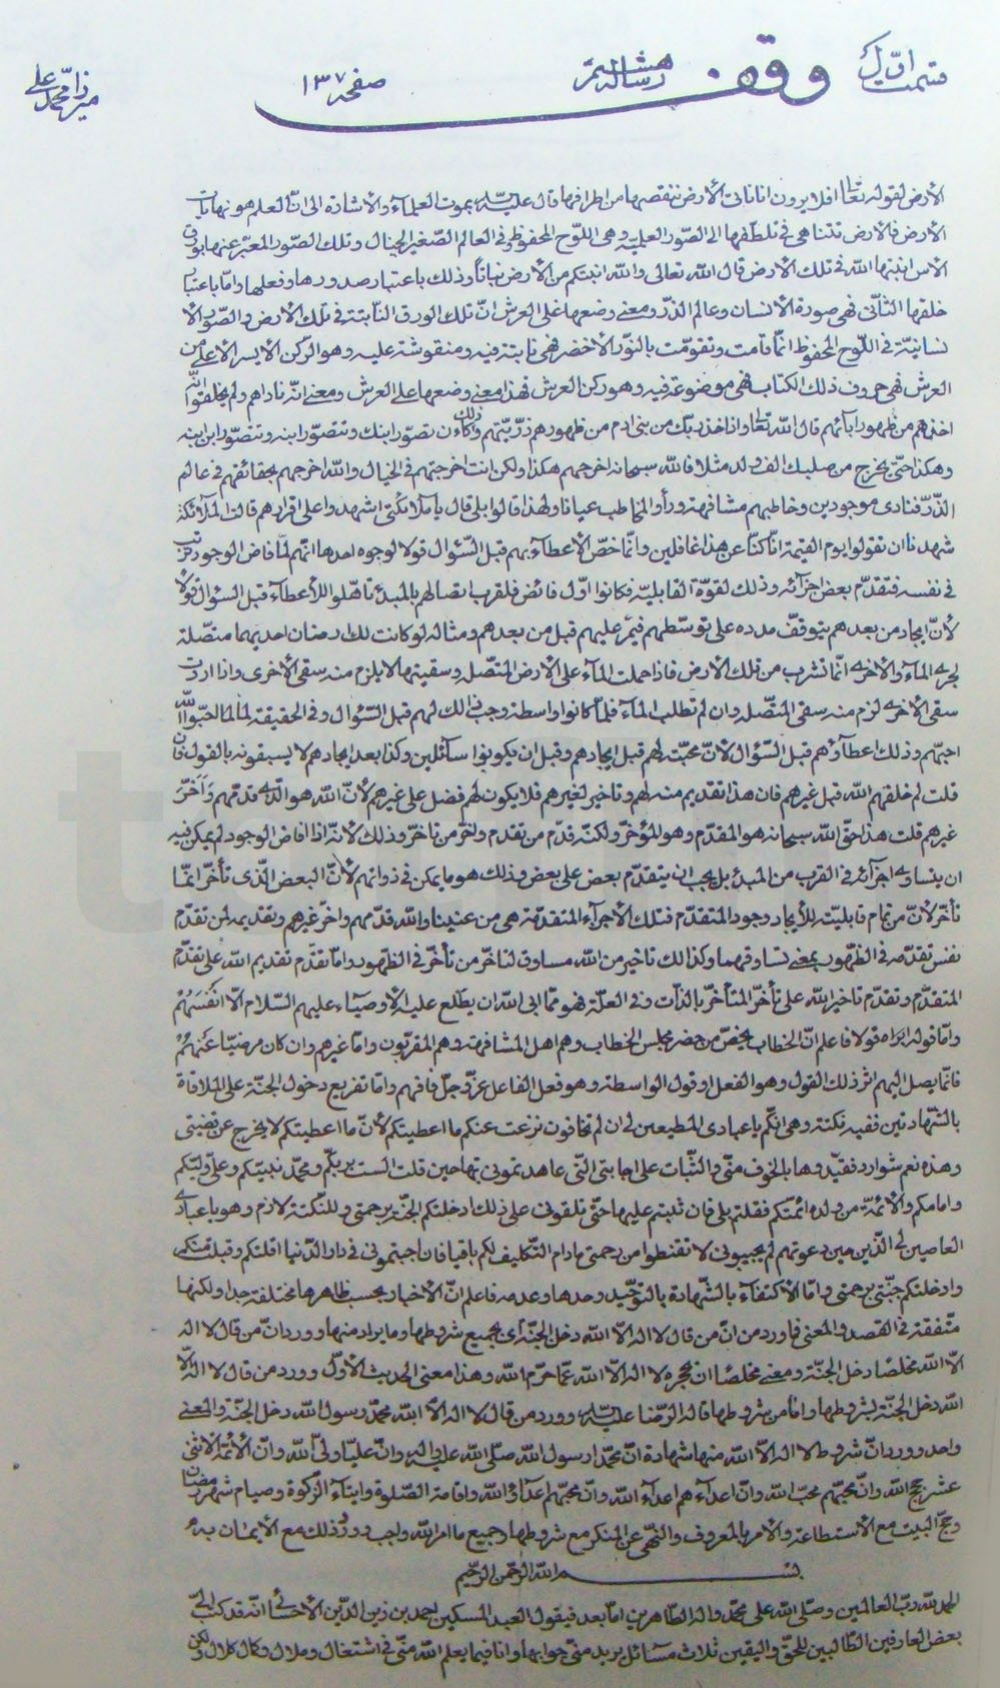 قسمت اوّل وقف رساله هشتم صفحه ١٣٧ میرزا محمّد علی
الأرض لقوله تعالى افلا يرون انا نأتى الأرض ننقصها من اطرافها قال عليه السّلام بموت العلماء والأشارة الى انّ العلم هو نهايات
الأرض فالأرض تتناهى فى تلطّفها الى الصّور العلميّة وهى اللّوح المحفوظ وفى العالم الصّغير الخيال وتلك الصّور المعبّر عنها بورق
الآس انبتها الله فى تلك الأرض قال الله تعالى والله انبتكم من الأرض نباتاً وذلك باعتبار صدورها وفعلها وامّا باعتبار
خلقها الثّانى فهى صورة الأنسان وعالم الذّر ومعنى وضعها على العرش انّ تلك الورق النّابتة فى تلك الأرض والصّور الأ
نسانيّة فى اللّوح المحفوظ انّما قامت وتقوّمت بالنّور الأخضر فهى نابتة فيه ومنقوشة عليه وهو الرّكن الأيسر الأعلى من
العرش فهى حروف ذلك الكتاب فهى موضوعة فيه وهو ركن العرش فهذا معنى وضعها على العرش ومعنى انّه ناداهم ولم يخلقوا انّه
اخذهم من ظهور ابآئهم قال الله تعالى واذ اخذ ربّك من بنى ادم من ظهورهم ذرّيّتهم وذلك كأن تصوّر ابنك وتتصوّر ابنه وتتصوّر ابن ابنه
وهكذا حتّى يخرج من صلبك الف ولد مثلا فالله سبحانه اخرجهم هكذا ولكن انت اخرجتهم فى الخيال والله اخرجهم بحقائقهم فى عالم
الذّر فنادى موجودين وخاطبهم مشافهة ورأوا المخاطب عيانا ولهذا قالوا بلى قال يا ملائكتى اشهدوا على اقرارهم قالت الملآئكة
شهدنا ان تقولوا يوم القيمة انّا كنّا عن هذا غافلين وانّما خصّ الأعطآء بهم قبل السّؤال قولا لوجوه احدها انّهم لمّا فاض الوجود ترتّب
فى نفسه فتقدّم بعض اجزآئه وذلك لقوّة القابليّة فكانوا اوّل فائض فلقرب اتّصالهم بالمبدء تأهّلوا للأعطآء قبل السؤال قولا
لأنّ ايجاد من بعدهم يتوقّف مدده على توسّطهم فيمرّ عليهم قبل من بعدهم ومثاله لو كانت لك ارضان احديهما متّصلة
لجرى المآء والأخرى انّما تشرب من تلك الأرض فاذا حملت المآء على الأرض المتّصلة وسقيتها لا يلزم منه سقى الأخرى واذا اردت
سقى الأخرى لزم منه سقى المتّصلة وان لم تطلب المآء فلمّا كانوا واسطة وجب ذلك لهم قبل السّؤال وفى الحقيقة لمّا احبّوا الله
احبّهم وذلك اعطآؤهم قبل السّؤال لأنّ محبّته لهم قبل ايجادهم وقبل ان يكونوا سآئلين وكذا بعد ايجادهم لا يسبقونه بالقول فان
قلت لم خلقهم الله قبل غيرهم فان هذا تقديم منه لهم وتأخير لغيرهم فلا يكون لهم فضل على غيرهم لأنّ الله هو الّذى قدّمهم وَاَخّرَ
غيرهم قلت هذا حقّ الله سبحانه هو المقدّم وهو المؤخّر ولكنّه قدّم من تقدم واخّر من تأخّر وذلك لأنّه اذا افاض الوجود لم يمكن فيه
ان يتساوى اجزآئه فى القرب من المبدء بل يجب ان يتقدّم بعض على بعض وذلك هو ما يمكن فى ذواتهم لأنّ البعض الّذى تأخّر انّما
تأخّر لأنّ من تمام قابليّته للأيجاد وجود المتقدّم فتلك الأجزآء المتقدّمة هى من عنينا والله قدّمهم واخّر غيرهم وتقديمه لمن تقدّم
نفس تقدّمه فى الظّهور بمعنى تساوقهما وكذلك تأخير من الله مساوق لتأخّر من تأخّر فى الظّهور وامّا تقدّم تقديم الله على تقدّم
المتقدّم وتقدّم تأخير الله على تأخّر المتأخّر بالذّات وفى العلّة فهو ممّا ابى الله ان يطّلع عليه الأوصيآء عليهم السّلام الّا انفسَهُمْ
وامّا قوله ابراه قولا فاعلم انّ الخطاب يخصّ من حضر مجلس الخطاب وهم اهل المشافهة وهم المقرّبون وامّا غيرهم وان كان مرضيّا عَنهُمْ
فانّما يصل اليهم اثر ذلك القول وهو الفعل او قول الواسطة وهو فعل الفاعل عزّ وجلّ فافهم وامّا تفريع دخول الجنّة على الملاقاة
بالشّهادتين ففيه نكتة وهى انّكم يا عبادى المطيعين لى ان لم تخافون نزعت عنكم ما اعطيتكم لأنّ ما اعطيتكم لا يخرج عن قبضتى
وهذه نعم شوارد فقيّدوها بالخوف منّى والثّبات على اجابتى الّتى عاهدتمونى بها حين قلت الست بربّكم ومحمّد نبيّكم وعلى وليّكم
وامامكم والأئمّة من ولده ائمّتكم فقلتم بلى فان ثبتم عليها حتّى تلقونى على ذلك ادخلتكم الجنّة برحمتى وللنّكتة لازم وهو يا عبادى
العاصين لى الّذين حين دعوتهم لم يجيبونى لا تقنطوا من رحمتى ما دام التّكليف لكم باقيا فان اجبتمونى فى دار الدّنيا اقلتكم وقبلت منكم
وادخلتكم جنّتى برحمتى وامّا الأكتفآء بالشّهادة بالتوحّيد وحدها وعدمه فاعلم انّ الأخبار بحسب ظاهرها مختلفة جدا ولكنها
متّفقة فى القصد والمعنى فما ورد من انّ من قال لا اله الّا الله دخل الجنّة اى بجميع شروطها وما يراد منها وورد انّ من قال لا اله
الّا الله مخلصًا دخل الجنّة ومعنى مخلصًا ان يحجزه لا اله الّا الله عمّا حرّم الله وهذا معنى الحديث الأوّل وورد من قال لا اله الّا
الله دخل الجنّة بشروطها وانا من شروطها قاله الرّضا عليه السّلام وورد من قال لا اله الّا الله محمّد رسول الله دخل الجنّة والمعنى
واحد وورد انّ شروط لا اله الّا الله منها شهادة انّ محمّدا رسول الله صلّى الله عليه واله وانّ عليّا ولىّ الله وانّ الأئمّة الأثنى
عشر حجج الله وانّ محبّهم محبّ الله وانّ اعدآءهم اعدآء الله وانّ محبّهم اعدآؤ الله واقامة الصّلوة وايتآء الزّكوة وصيام شهر رمضان
وحجّ البيت مع الأستطاعة والأمر بالمعروف والنّهى عن المنكر مع شروطها وجميع ما امر الله واجب وورد ذلك مع الأيمان به
بسم الله الرّحمن الرّحيم
الحمد لله ربّ العالمين وصلّى الله على محمّد واله الطّاهرين امّا بعد فيقول العبد المسكين احمد بن زين الدّين الأحسائى انّه قد كتب الىّ
بعض العارفين الطّالبين للحقّ واليقين ثلاث مسائل يريد منّى جوابها وانا فيما يعلم الله منّى فى اشتغال وملال وكمال كلال ولكن